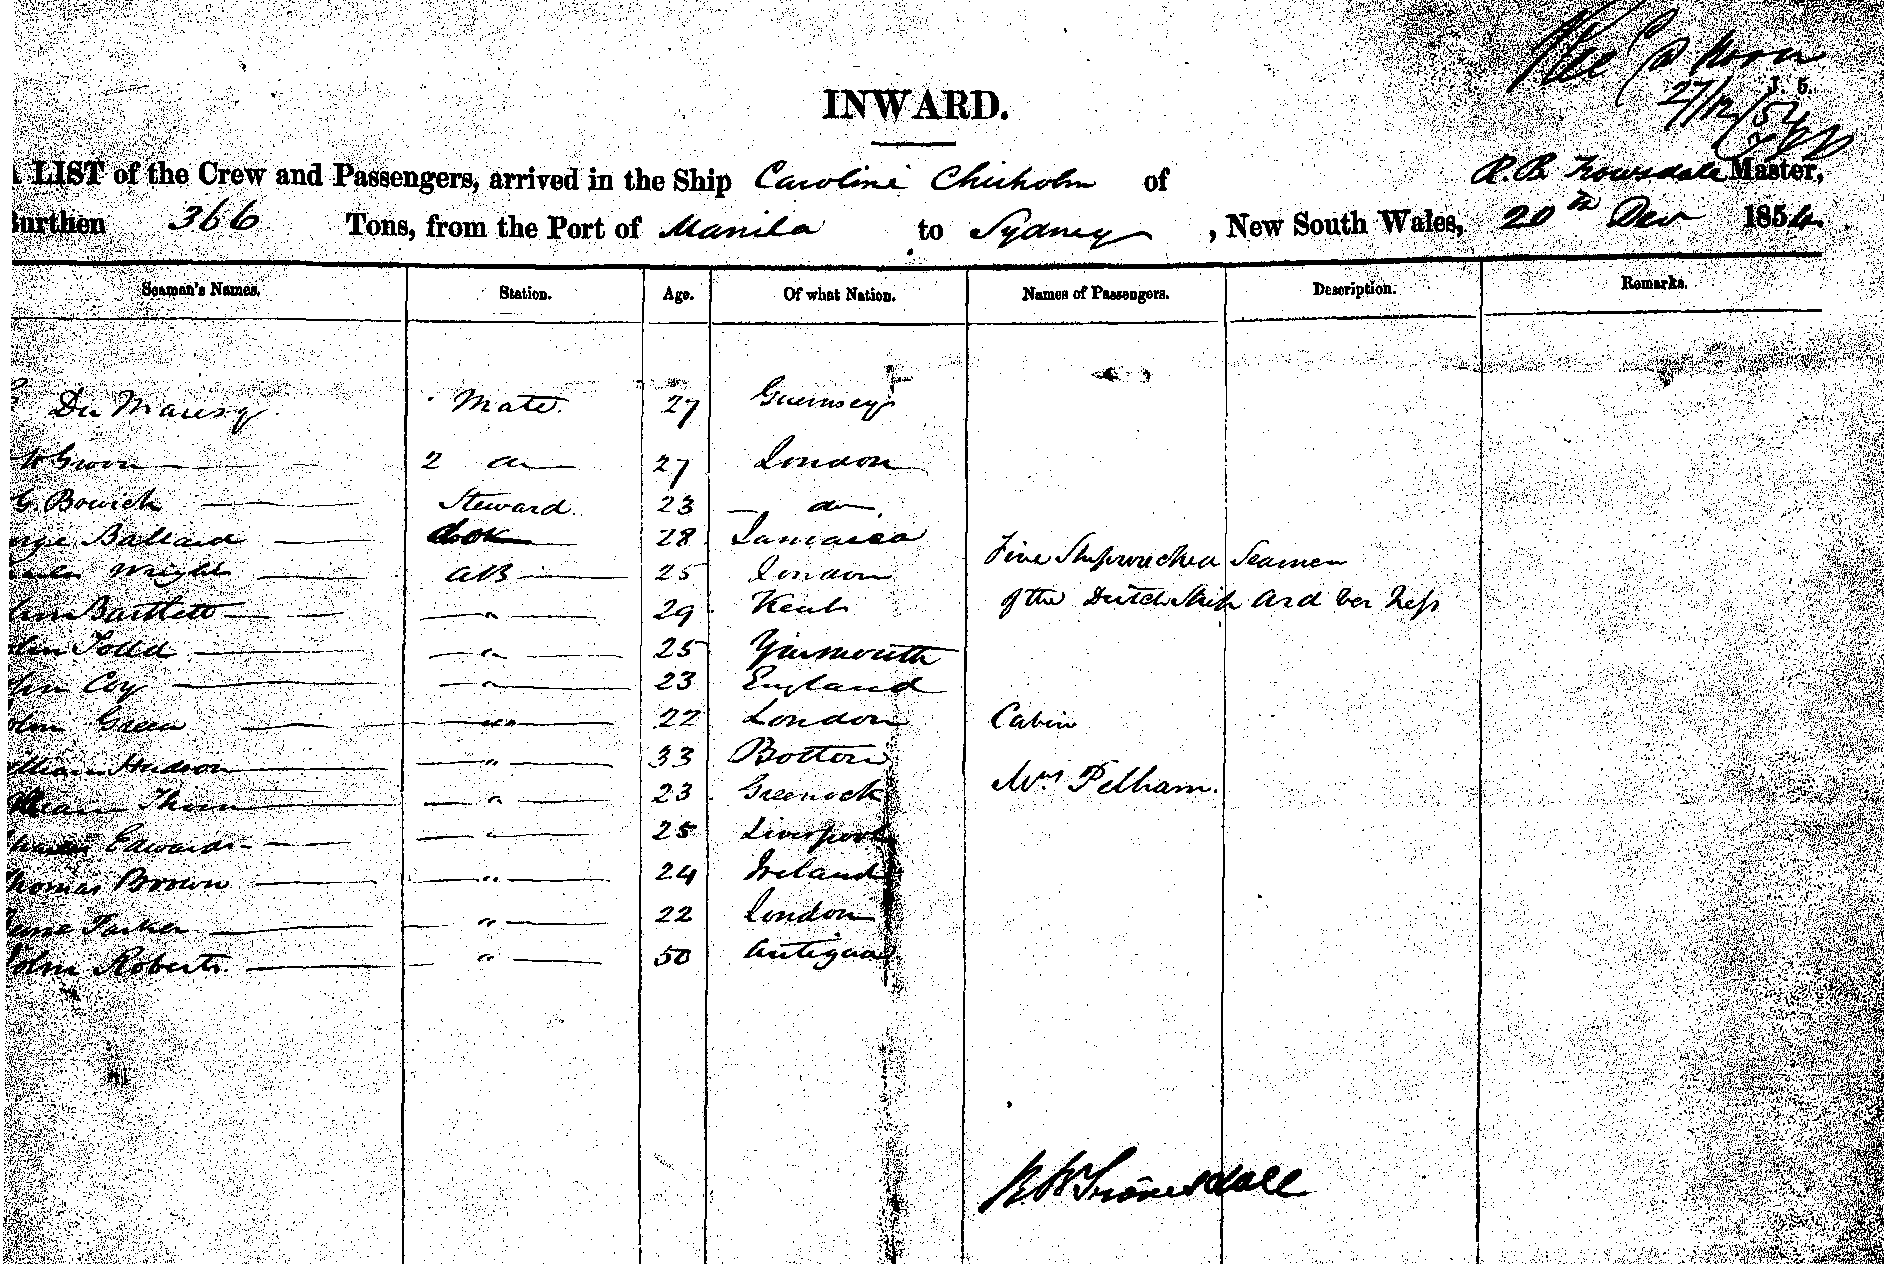 Rec @ Noon
J. 5.
27/12/54
INWARD.
LIST of the Crew and Passengers, arrived in the Ship Caroline Chisholm of R.B. Trowsdale Master,
Burthen 366 Tons, from the Port of Manila to Sydney, New South Wales, 20th Dec 1854.
Seaman's Names. Station. Age. Of what Nation. Names of Passengers. Description. Remarks.
Du Maresq Mate. 27 Guernsey
2 do 27 London
G. Bowick Steward. 23 do
Ballard Cook 28 Jamaica
Wright AB 25 London Five Shipwrecked Seamen
Bartlett " 29 Kent of the Dutch Ship
Todd " 25 Yarmouth
Coy " 23 England
Green " 22 London Cabin
Hudson " 33 Botton
" 23 Greenock Mrs Pelham.
Edwards " 25 Liverpool
Thomas Brown " 24 Ireland
Parker " 22 London
John Roberts " 50 Antigua
Trowsdale